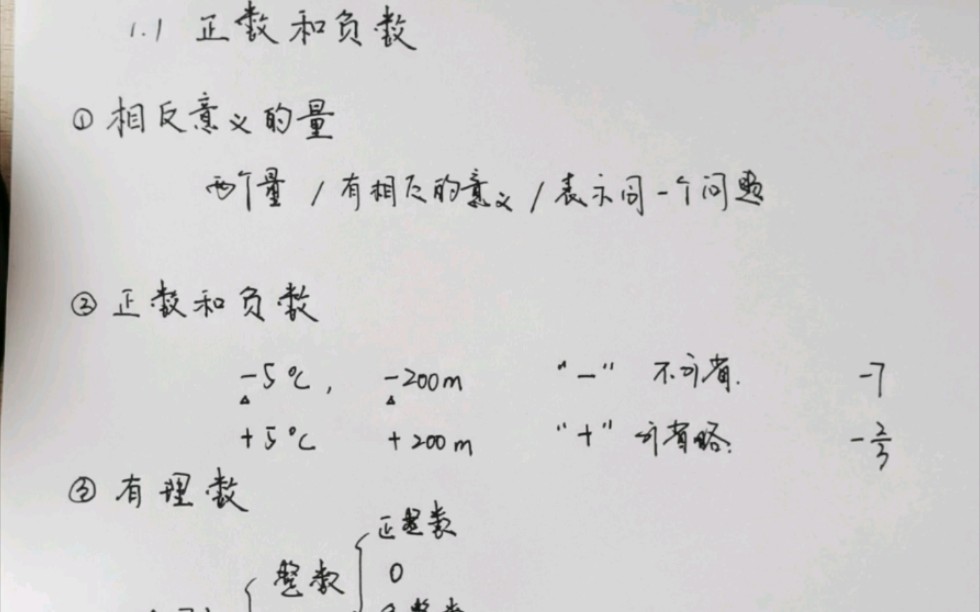 1.1 正数和负数
① 相反意义的量
两个量 / 有相反的意义 / 表示同一个问题
② 正数和负数
-5℃, -200m “-” 不可省. -7
+5℃ +200m “+” 可省略. -2/3
③ 有理数
正整数
整数 0
负整数